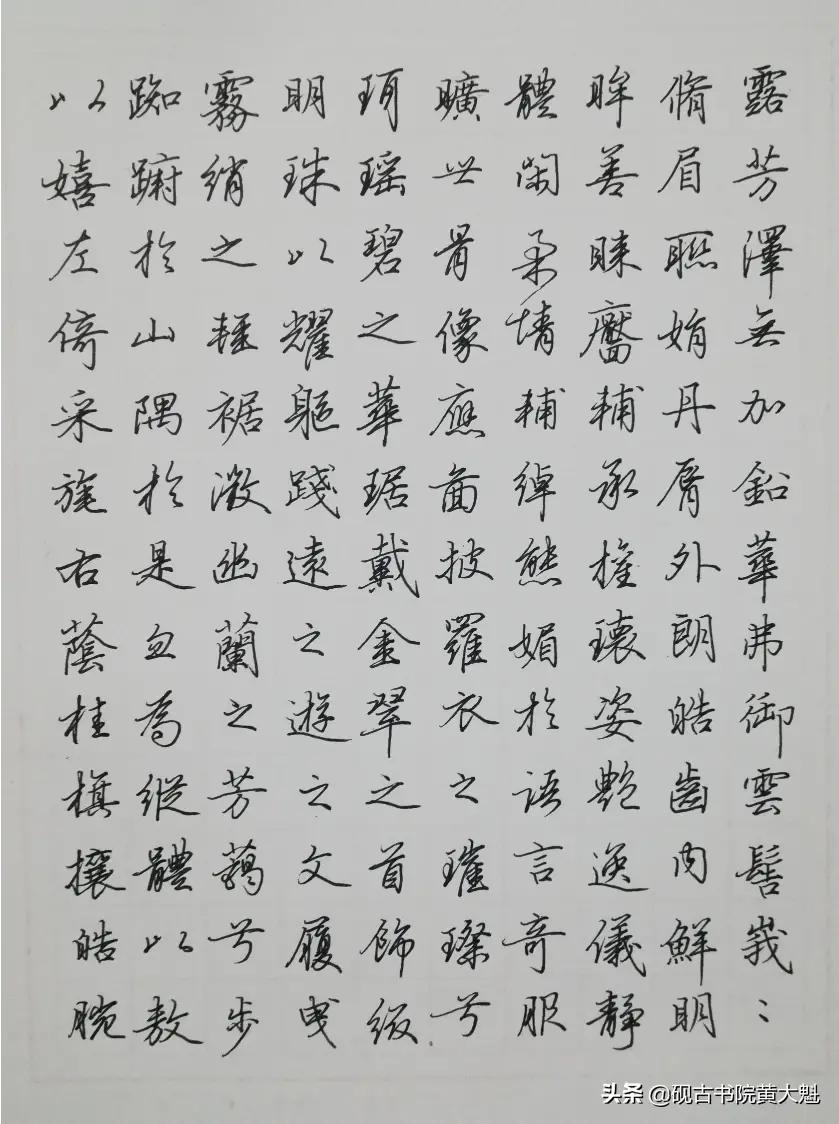 露芳澤無加鉛華弗御雲髻峩〻
脩眉聯娟丹脣外朗皓齒內鮮明
眸善睞靨輔承權瓌姿艷逸儀靜
體閑柔情輔綽態媚於語言奇服
曠世骨像應啚披羅衣之璀璨兮
珥瑤碧之華琚戴金翠之首飾綴
明珠以耀軀踐遠之遊之文履曳
霧綃之輕裾微幽蘭之芳藹兮步
踟躕於山隅於是忽為縱體以敖
以嬉左倚采旄右蔭桂旗攘皓腕
头条 @砚古书院黄大魁